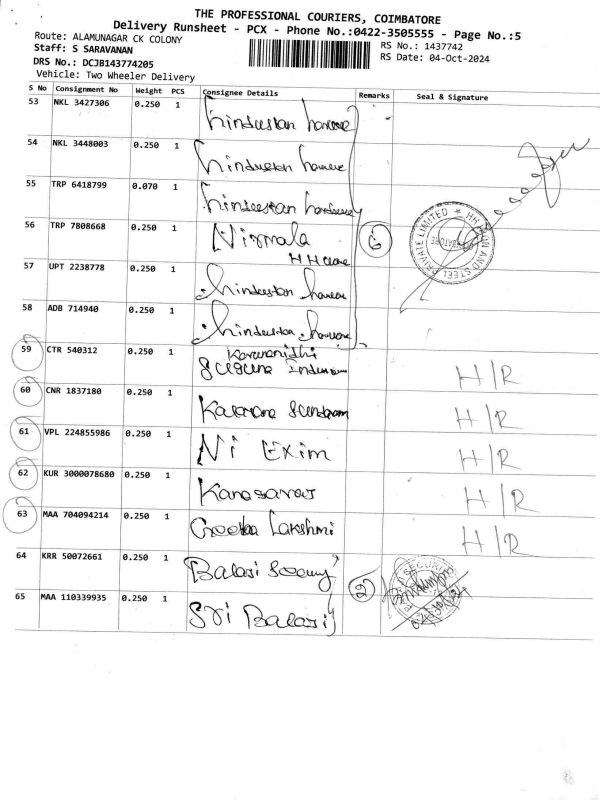 THE PROFESSIONAL COURIERS, COIMBATORE
Delivery Runsheet - PCX - Phone No.:0422-3505555 - Page No.:5
Route: ALAMUNAGAR CK COLONY
RS No.: 1437742
Staff: S SARAVANAN
RS Date: 04-Oct-2024
DRS No.: DCJB143774205
Vehicle: Two Wheeler Delivery
S No Consignment No Weight PCS Consignee Details Remarks Seal & Signature
53 NKL 3427306 0.250 1 hindustan
54 NKL 3448003 0.250 1 hindustan
55 TRP 6418799 0.070 1 hindustan
56 TRP 7808668 0.250 1 Nirmala
6
57 UPT 2238778 0.250 1 hindustan
58 ADB 714940 0.250 1 hindustan
59 CTR 540312 0.250 1 H/R
60 CNR 1837180 0.250 1 H/R
61 VPL 224855986 0.250 1 Ni Exim H/R
62 KUR 3000078680 0.250 1 H/R
63 MAA 704094214 0.250 1 Lakshmi H/R
64 KRR 50072661 0.250 1 Balaji
2
65 MAA 110339935 0.250 1 Sri Balaji